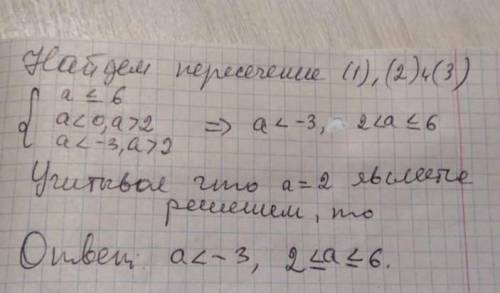 Найдем пересечение (1), (2) и (3)
{ a ≤ 6
a<0, a>2 => a < -3, 2<a≤6
a<-3, a>2
Учитывая что a=2 является
решением, то
Ответ: a<-3, 2≤a≤6.